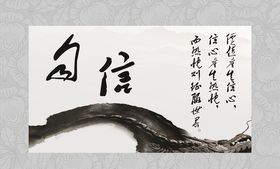 自信
经验产生信心，
信心产生热忱，
而热忱则征服世界。